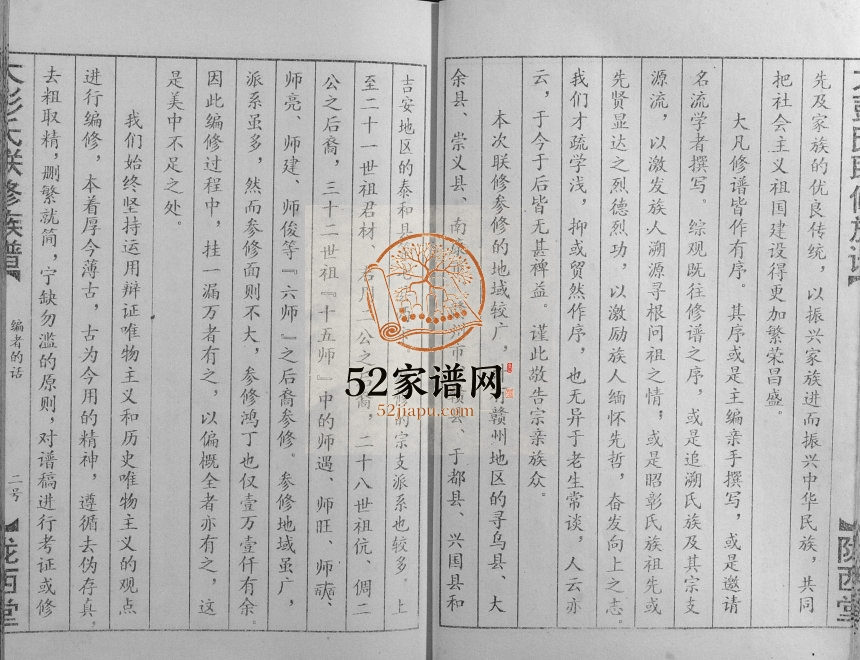 先及家族的优良传统，以振兴家族进而振兴中华民族，共同
把社会主义祖国建设得更加繁荣昌盛。
大凡修谱皆作有序。其序或是主编亲手撰写，或是邀请
名流学者撰写。综观既往修谱之序，或是追溯氏族及其宗支
源流，以激发族人溯源寻根问祖之情；或是昭彰氏族祖先或
先贤显达之烈德烈功，以激励族人缅怀先哲，奋发向上之志。
我们才疏学浅，抑或贸然作序，也无异于老生常谈，人云亦
云，于今于后皆无甚裨益。谨此敬告宗亲族众。
本次联修参修的地域较广，赣州地区的寻乌县、大
余县、崇义县、南康市、赣州市、于都县、兴国县和
吉安地区的泰和县的宗支派系也较多，上
至二十一世祖君材、二公之后裔，二十八世祖伉、倜二
公之后裔，三十二世祖『十五师』中的师遇、师旺、师奭、
师亮、师建、师俊等『六师』之后裔参修。参修地域虽广，
派系虽多，然而参修面则不大，参修鸿丁也仅壹万壹仟有余。
因此编修过程中，挂一漏万者有之，以偏概全者亦有之，这
是美中不足之处。
我们始终坚持运用辩证唯物主义和历史唯物主义的观点
进行编修，本着厚今薄古，古为今用的精神，遵循去伪存真，
去粗取精，删繁就简，宁缺勿滥的原则，对谱稿进行考证或修
彭氏联修族谱
编者的话
二号
陇西堂
陇西堂
52家谱网
52jiapu.com